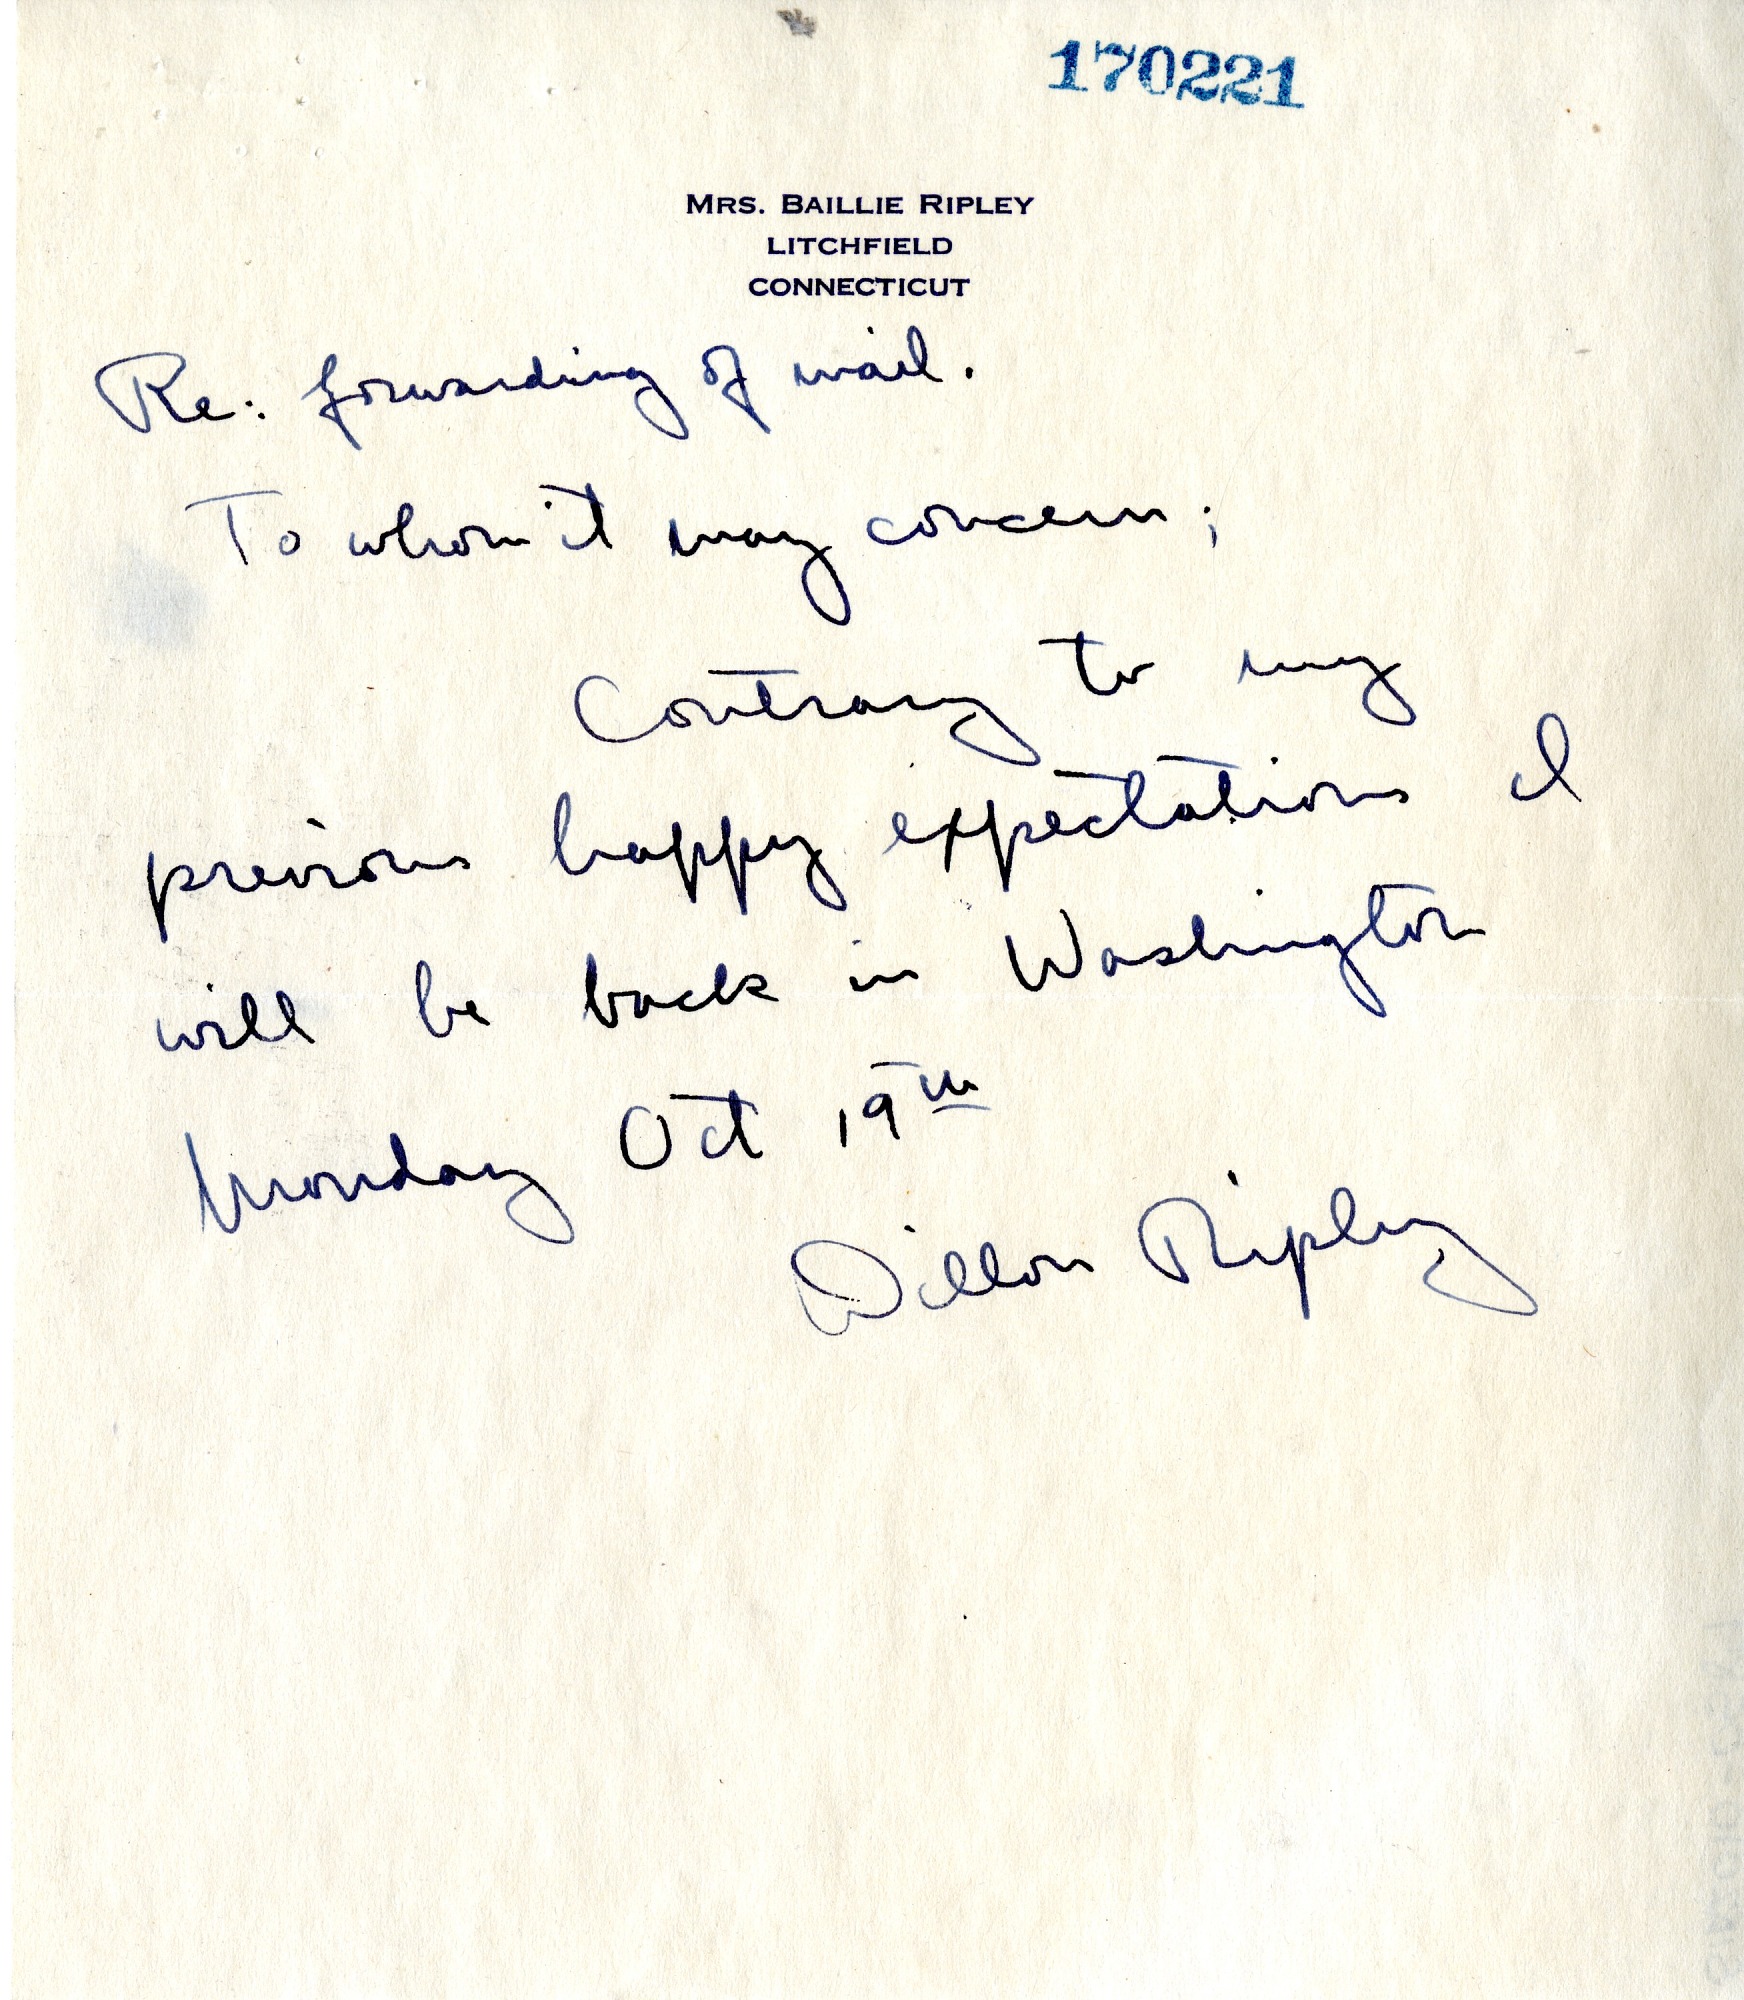 170221
MRS. BAILLIE RIPLEY
LITCHFIELD
CONNECTICUT
Re: forwarding of mail.
To whom it may concern;
Contrary to my
previous happy expectations I
will be back in Washington
Monday Oct 19th
Dillon Ripley